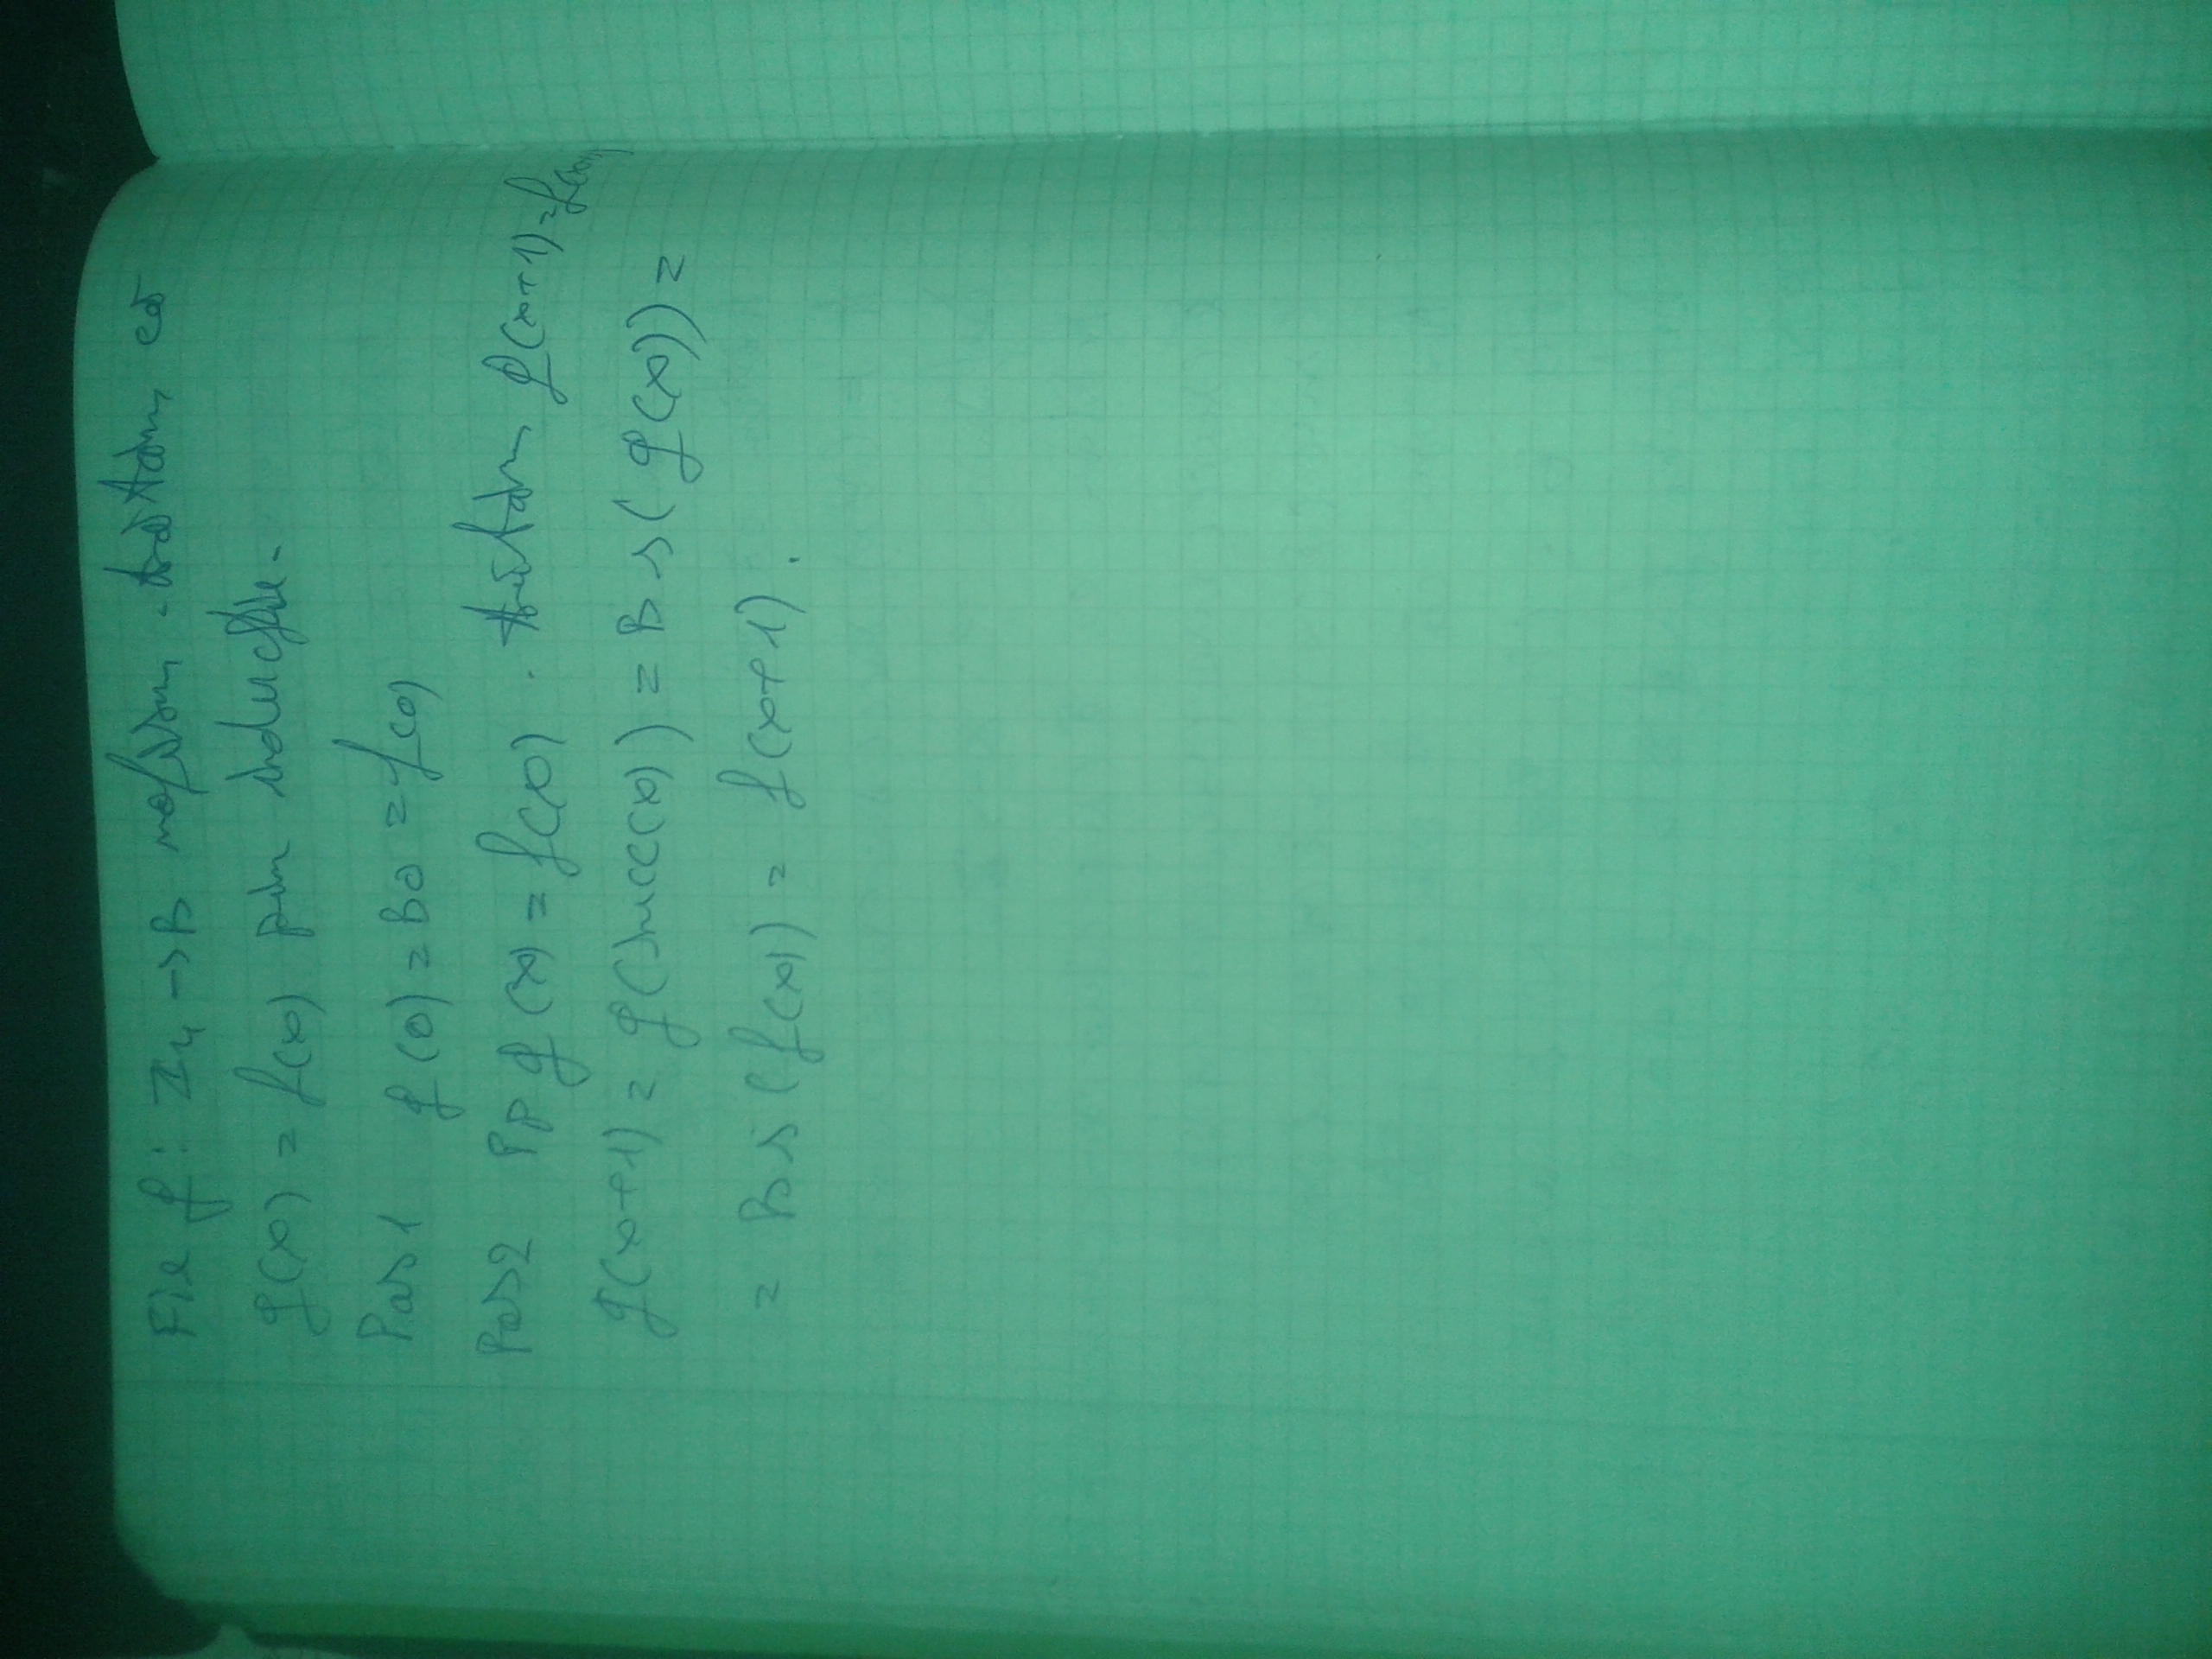 Fie g : Z₄ → B morfism. Arătăm că
g(x) = f(x) prin inducție.
Pas 1 g(0) = B0 = f(0)
Pas 2 Pp g(x) = f(x). Arătăm g(x+1) = f(x+1)
g(x+1) = g(succ(x)) = Bs(g(x)) =
= Bs(f(x)) = f(x+1).